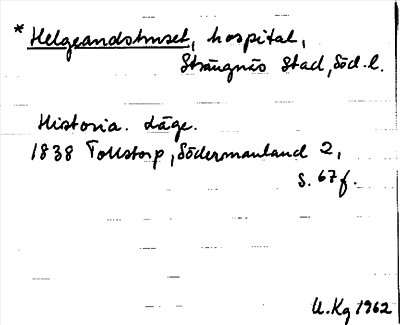 * Helgeandshuset, hospital,
Strängnäs Stad, Söd. l.
Historia. Läge.
1838 Tollstorp, Södermanland 2,
s. 67 f.
U. Kg 1962